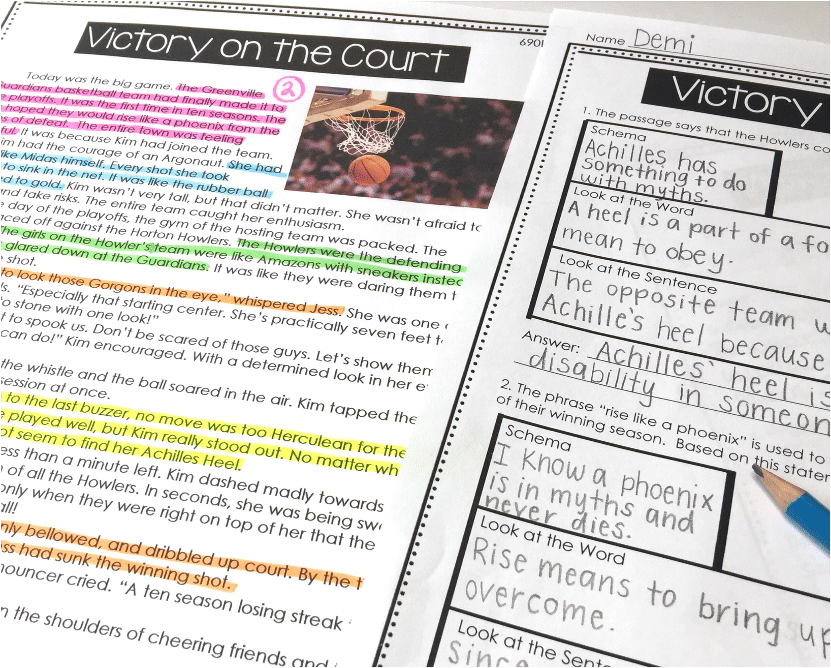 Victory on the Court
690
Today was the big game. The Greenville
Guardians basketball team had finally made it to
playoffs. It was the first time in ten seasons. The
hoped they would rise like a phoenix from the
of defeat. The entire town was feeling
It was because Kim had joined the team.
had the courage of an Argonaut. She had
like Midas himself. Every shot she took
to sink in the net. It was like the rubber ball
to gold. Kim wasn't very tall, but that didn't matter. She wasn't afraid to
and take risks. The entire team caught her enthusiasm.
day of the playoffs, the gym of the hosting team was packed. The
off against the Horton Howlers. The Howlers were the defending
The girls on the Howler's team were like Amazons with sneakers
glared down at the Guardians. It was like they were daring them
shot.
to look those Gorgons in the eye," whispered Jess. She was one
"Especially that starting center. She's practically seven feet
to stone with one look!"
to spook us. Don't be scared of those guys. Let's show them
can do!" Kim encouraged. With a determined look in her
the whistle and the ball soared in the air. Kim tapped the
session at once.
to the last buzzer, no move was too Herculean for the
played well, but Kim really stood out. No matter
seem to find her Achilles Heel.
less than a minute left. Kim dashed madly towards
of all the Howlers. In seconds, she was being
only when they were right on top of her that the
bellowed, and dribbled up court. By the
had sunk the winning shot.
cried. "A ten season losing streak
the shoulders of cheering friends and
2
Name Demi
Victory
1. The passage says that the Howlers
Schema
Achilles has
something to do
with myths.
Look at the Word
A heel is a part of a
mean to obey.
Look at the Sentence
The opposite team
Achille's heel because
Answer: Achilles' heel is
disability in
2. The phrase "rise like a phoenix" is used to
of their winning season. Based on this
Schema
I know a phoenix
is in myths and
never dies.
Look at the Word
Rise means to bring up
overcome.
Look at the Sentence
since